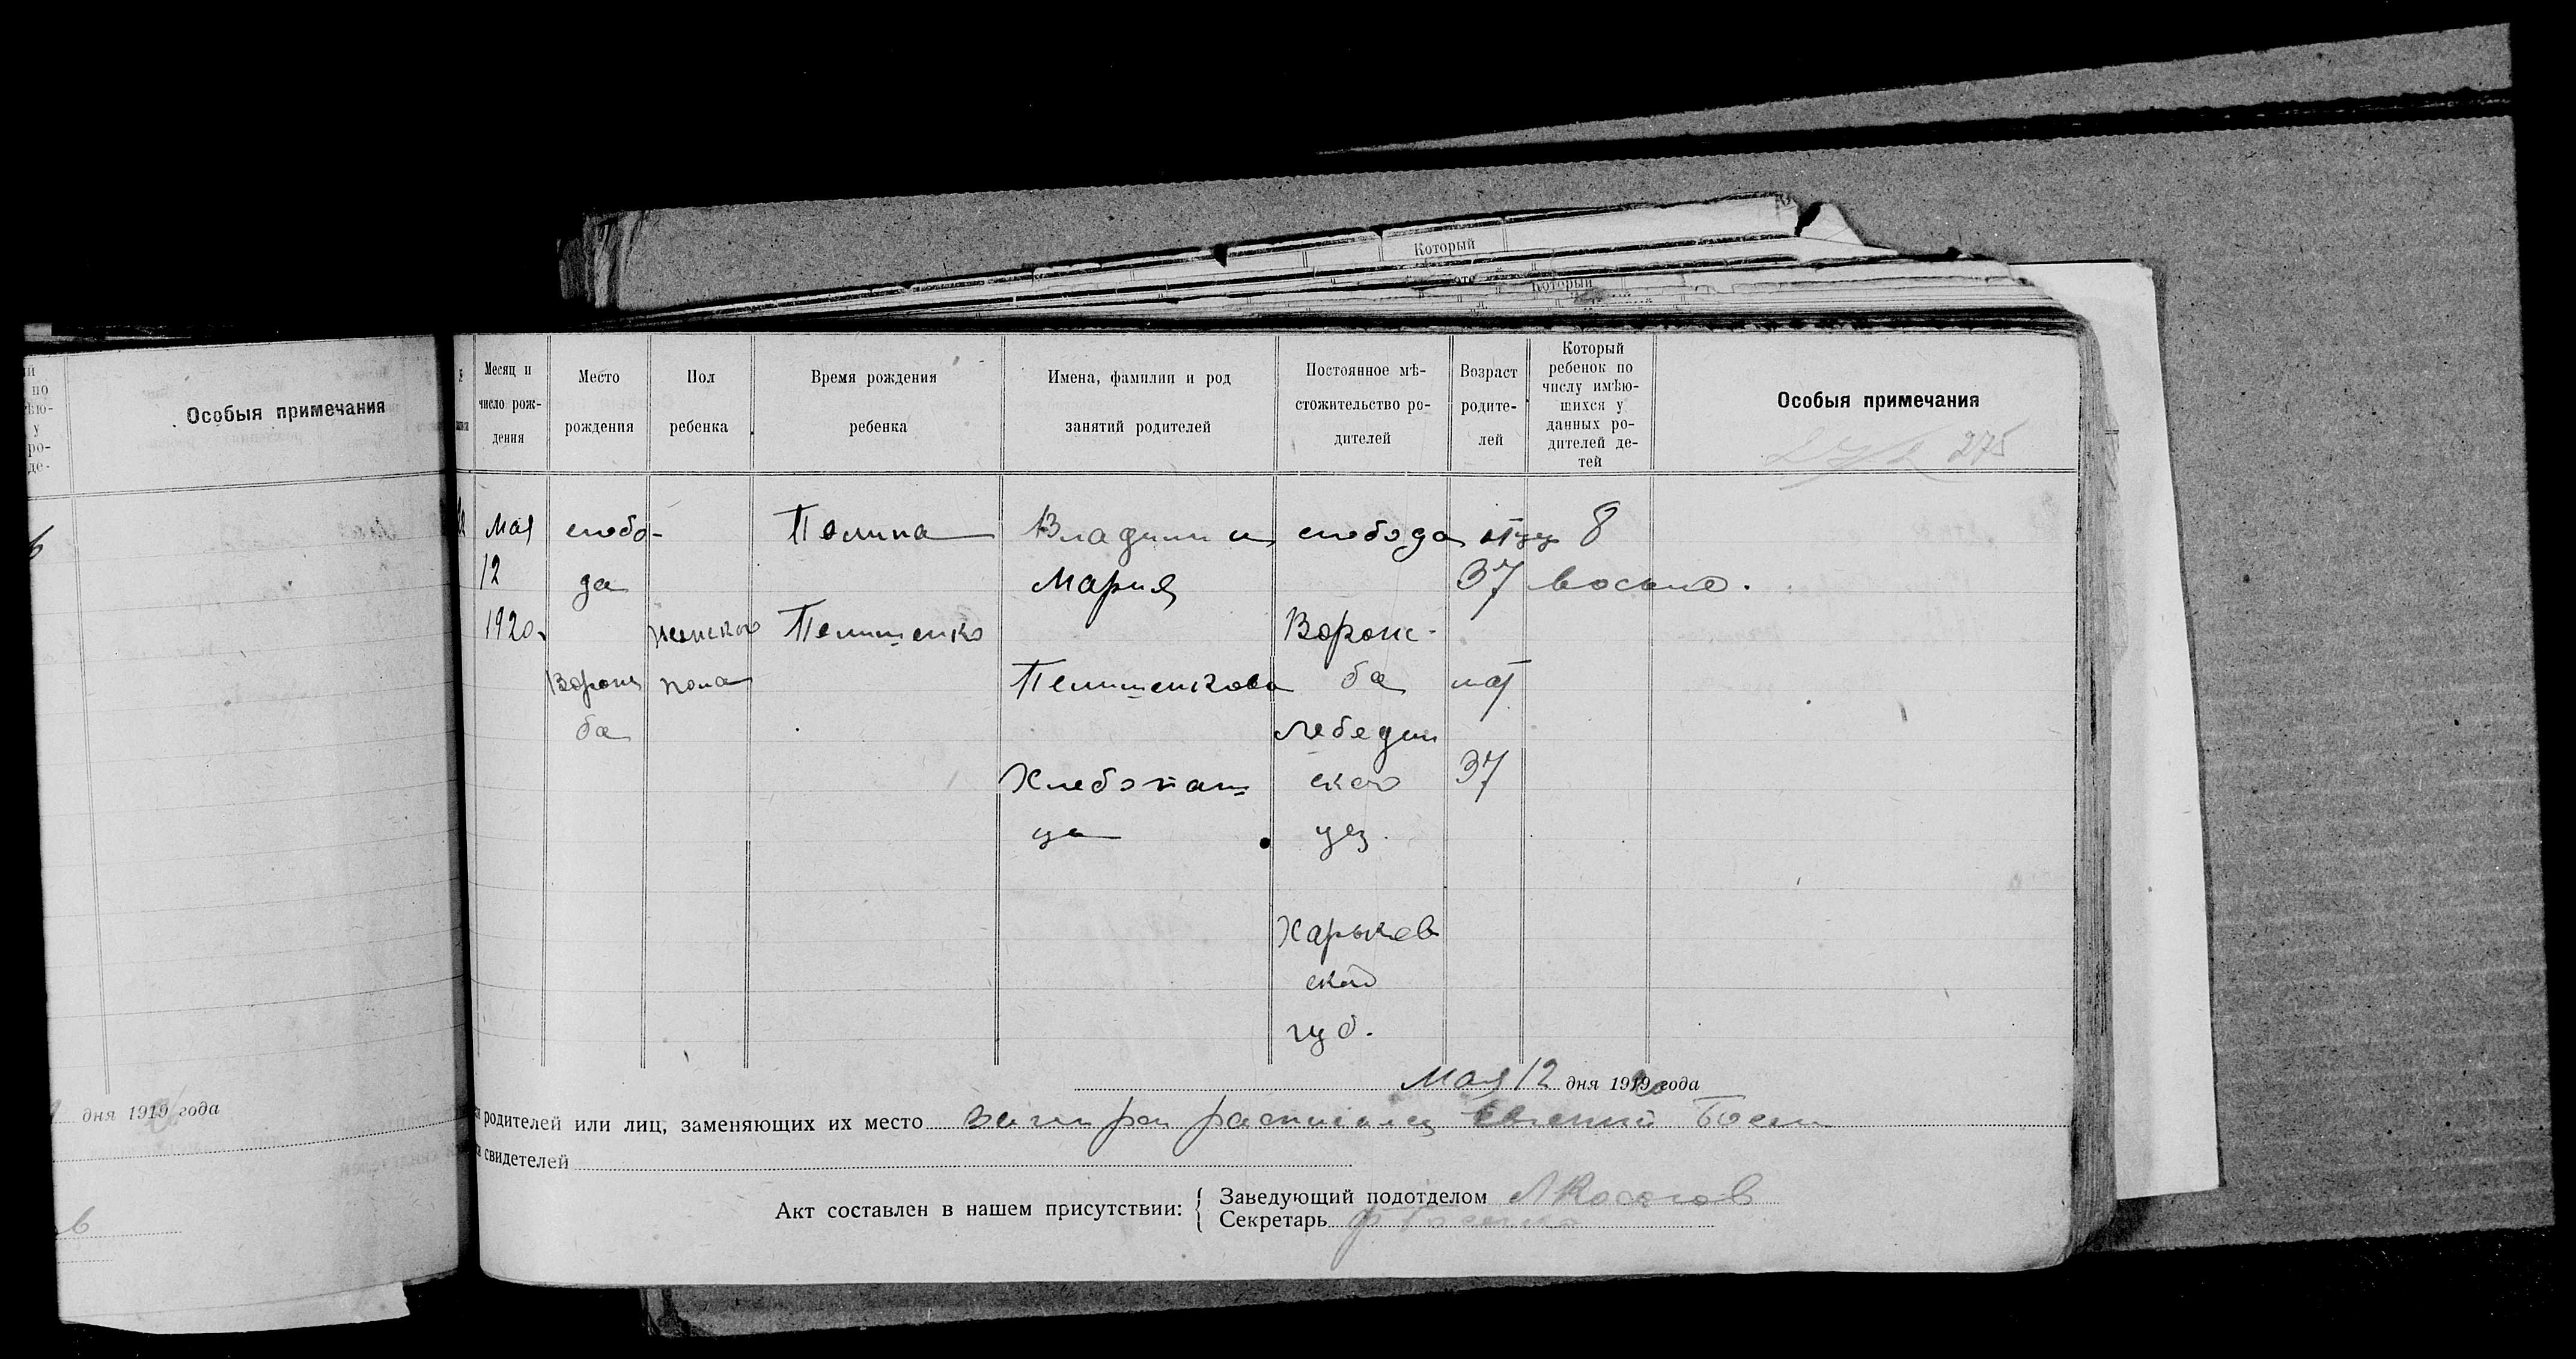 Который
Который
Особыя примечания
дня 1919 года
Месяц и число рож-дения
Место рождения
Пол ребенка
Время рождения ребенка
Имена, фамилии и род занятий родителей
Постоянное мѣ-стожительство ро-дителей
Возраст родите-лей
Который ребенок по числу имѣю-шихся у данных ро-дителей де-тей
Особыя примечания
275
Мая
12
1920.
слобо-
да
Ворож
ба
женского
пола
Полина
Пелишенко
Владим и
Мария
Пелишенкова
Хлебопаш
ца
слобода
Борож-
ба
Лебедин
ского
уез.
Харьков
ской
губ.
отцу
37
мат
37
8
восьмо.
Мая 12 дня 1919 20 года
родителей или лиц, заменяющих их место расписался Евгений
свидетелей
Акт составлен в нашем присутствии:
Заведующий подотделом
Секретарь